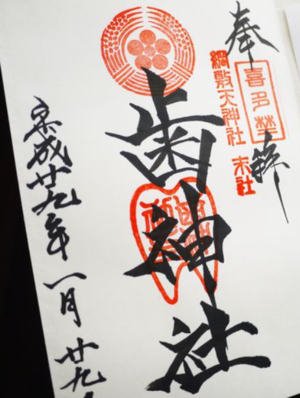 奉拝
喜多埜
綱敷天神社 末社
歯神社
平成廿九年一月廿九